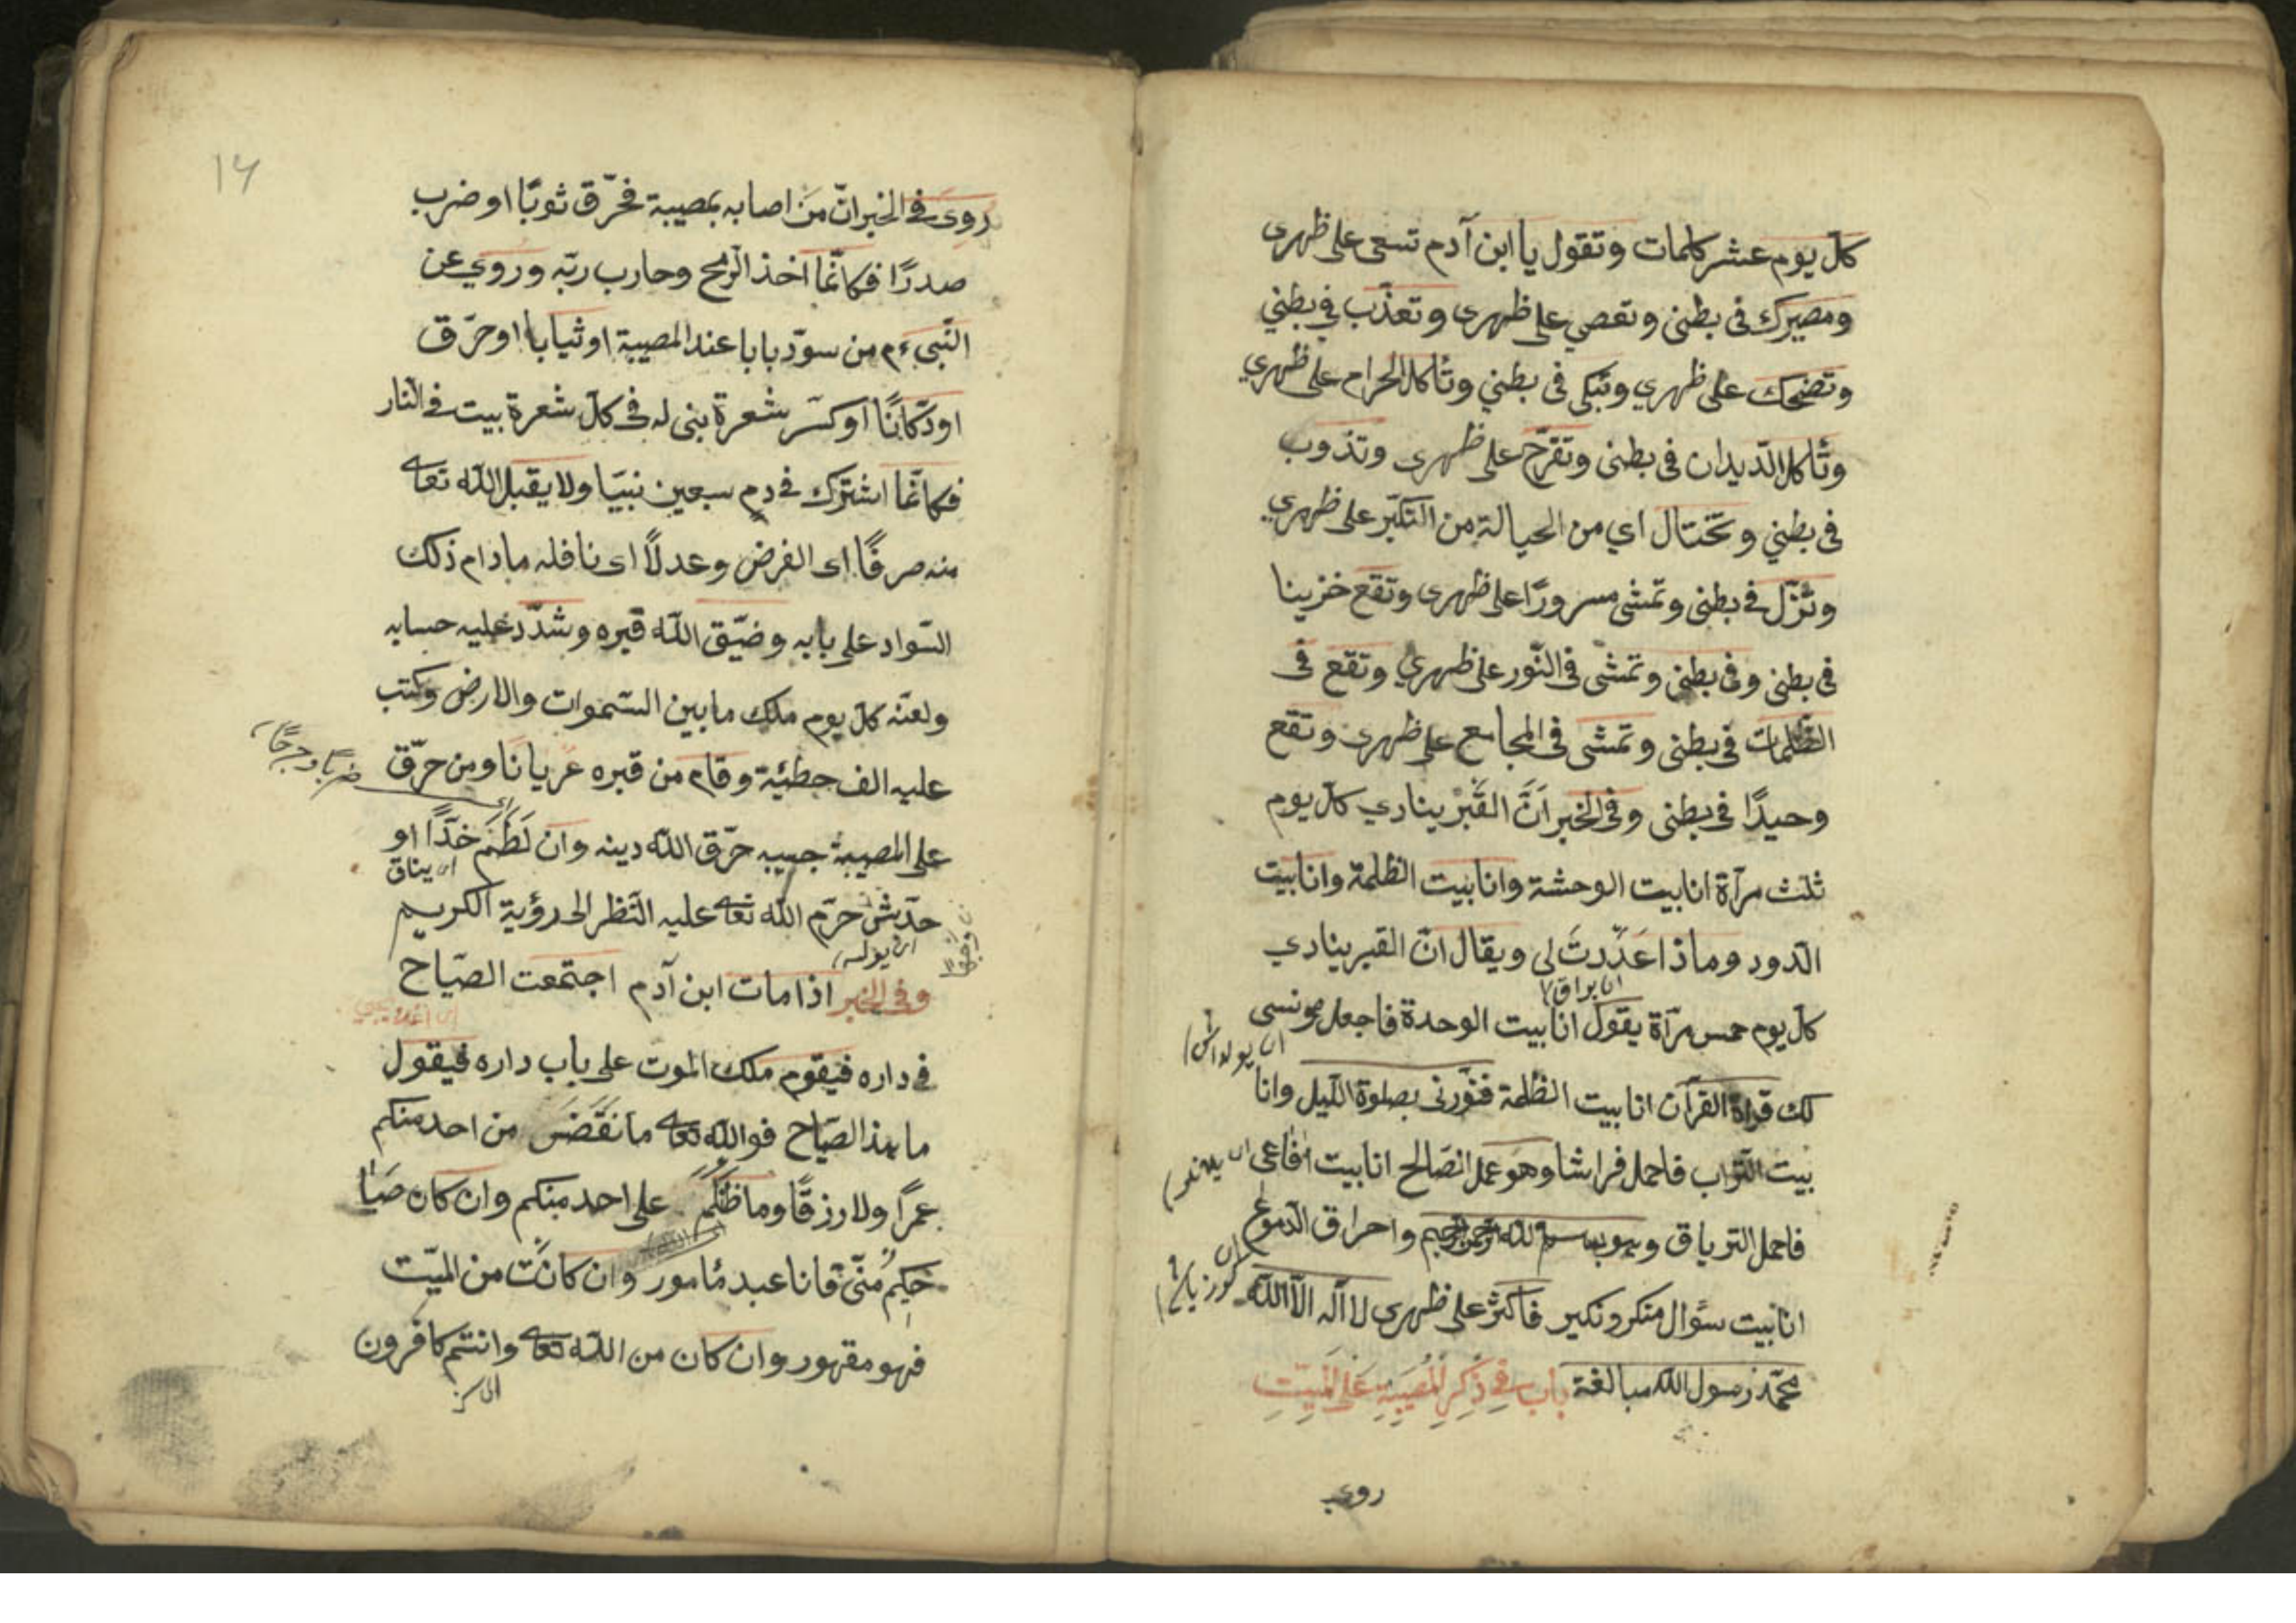 كل يوم عشر كلمات وتقول يا ابن آدم تسعى على ظهرى
ومصيرك فى بطنى وتعصي على ظهرى وتعذّب في بطني
وتضحك على ظهري وتبكى فى بطني وتأكل الحرام على ظهري
وتأكل الدّيدان فى بطنى وتفرّح على ظهرى وتذوب
فى بطني وتختال اي من الحيالة من التكبّر على ظهري
وتزّل في بطنى وتمشى مسرورًا على ظهرى وتقع حزينا
فى بطنى وفى بطنى وتمشى فى النّور على ظهري وتقع فى
الظّلمات فى بطنى وتمشى فى المجامع على ظهرى وتقع
وحيدًا فى بطنى وفى الخبر اَنَّ القَبْر ينادي كل يوم
ثلث مرآة انا بيت الوحشة وانا بيت الظلمة وانا بيت
الدّود وماذا اعدّدتَ لى ويقال انّ القبر ينادي
كل يوم خمس مرآة يقول انا بيت الوحدة فاجعل مونسى
لك قراة القرآن انا بيت الظلمة فنوّرنى بصلوة اللّيل وانا
بيت التّراب فاحمل فراشا وهو عمل الصّالح انا بيت افاعى
فاحمل الترياق وهو بسم الله الرحمن الرحيم واحراق الدّموع
انا بيت سؤال منكر ونكير فأكثر على ظهرى لا اله الاّ الله
محمّد رسول الله مبالغة باب في ذكر المصيبة على الميت
روى
١٤
روى في الخبر انّ من اصابه بمصيبة فخرّق ثوبًا او ضرب
صدرًا فكانّما اخذ الرّمح وحارب ربّه وروي عن
النّبىء م من سوّد بابا عند المصيبة او ثيابا او خرّق
او دكّانًا او كسّر شعرة بنى له فى كلّ شعرة بيت فى النار
فكانّما اشترك في دم سبعين نبيّا ولا يقبل اللّه تعا
منه صرفًا اى الفرض وعدلاً اى نافله مادام ذلك
السّواد على بابه وضيّق اللّه قبره وشدّد عليه حسابه
ولعنه كلّ يوم ملك ما بين السّموات والارض وكتب
عليه الف خطيئة وقام من قبره عريانًا ومن خرّق
ضربًا وجرحًا
على المصيبة جيبه خرّق اللّه دينه وان لَطَمَ خدًّا او
اى يناق
خدّش حرّم اللّه تعا عليه النّظر الى رؤية الكريم
وفى الخبر اذا مات ابن آدم اجتمعت الصّياح
فى داره فيقوم ملك الموت على باب داره فيقول
ما هذا الصّياح فوالله تعا ما نقَضَ من احد منكم
عمرًا ولا رزقًا وما ظلم على احد منكم وان كان
منّى فانا عبد مأمور وان كانت من الميّت
فهو مقهور وان كان من اللّه تعا وانتم كافرون